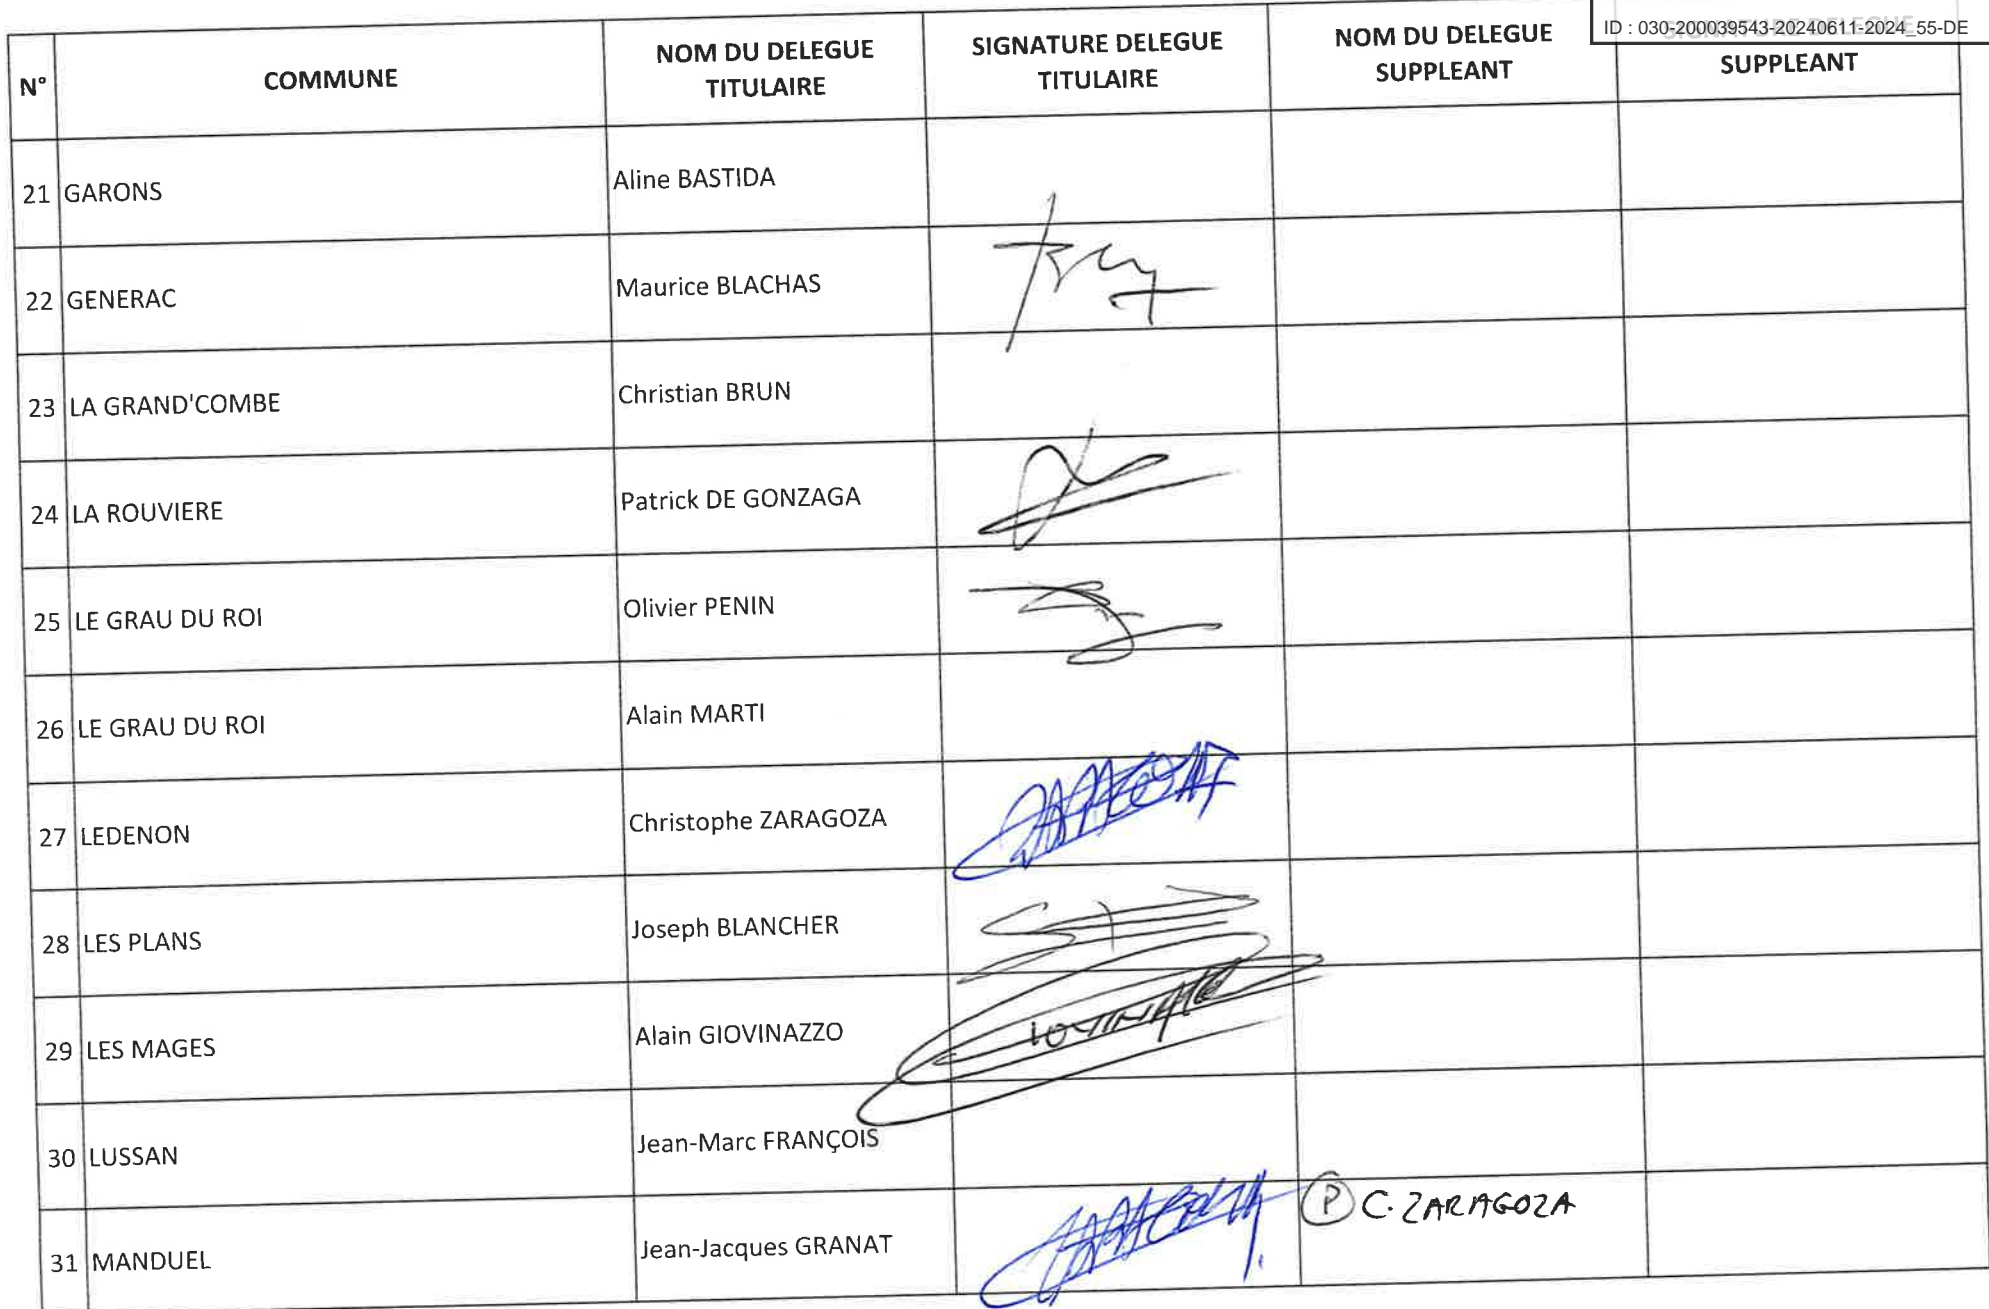 ID : 030-200039543-20240611-2024_55-DE
N° COMMUNE NOM DU DELEGUE TITULAIRE SIGNATURE DELEGUE TITULAIRE NOM DU DELEGUE SUPPLEANT SIGNATURE DELEGUE SUPPLEANT
21 GARONS Aline BASTIDA
22 GENERAC Maurice BLACHAS
23 LA GRAND'COMBE Christian BRUN
24 LA ROUVIERE Patrick DE GONZAGA
25 LE GRAU DU ROI Olivier PENIN
26 LE GRAU DU ROI Alain MARTI
27 LEDENON Christophe ZARAGOZA
28 LES PLANS Joseph BLANCHER
29 LES MAGES Alain GIOVINAZZO
30 LUSSAN Jean-Marc FRANÇOIS
31 MANDUEL Jean-Jacques GRANAT P C. ZARAGOZA